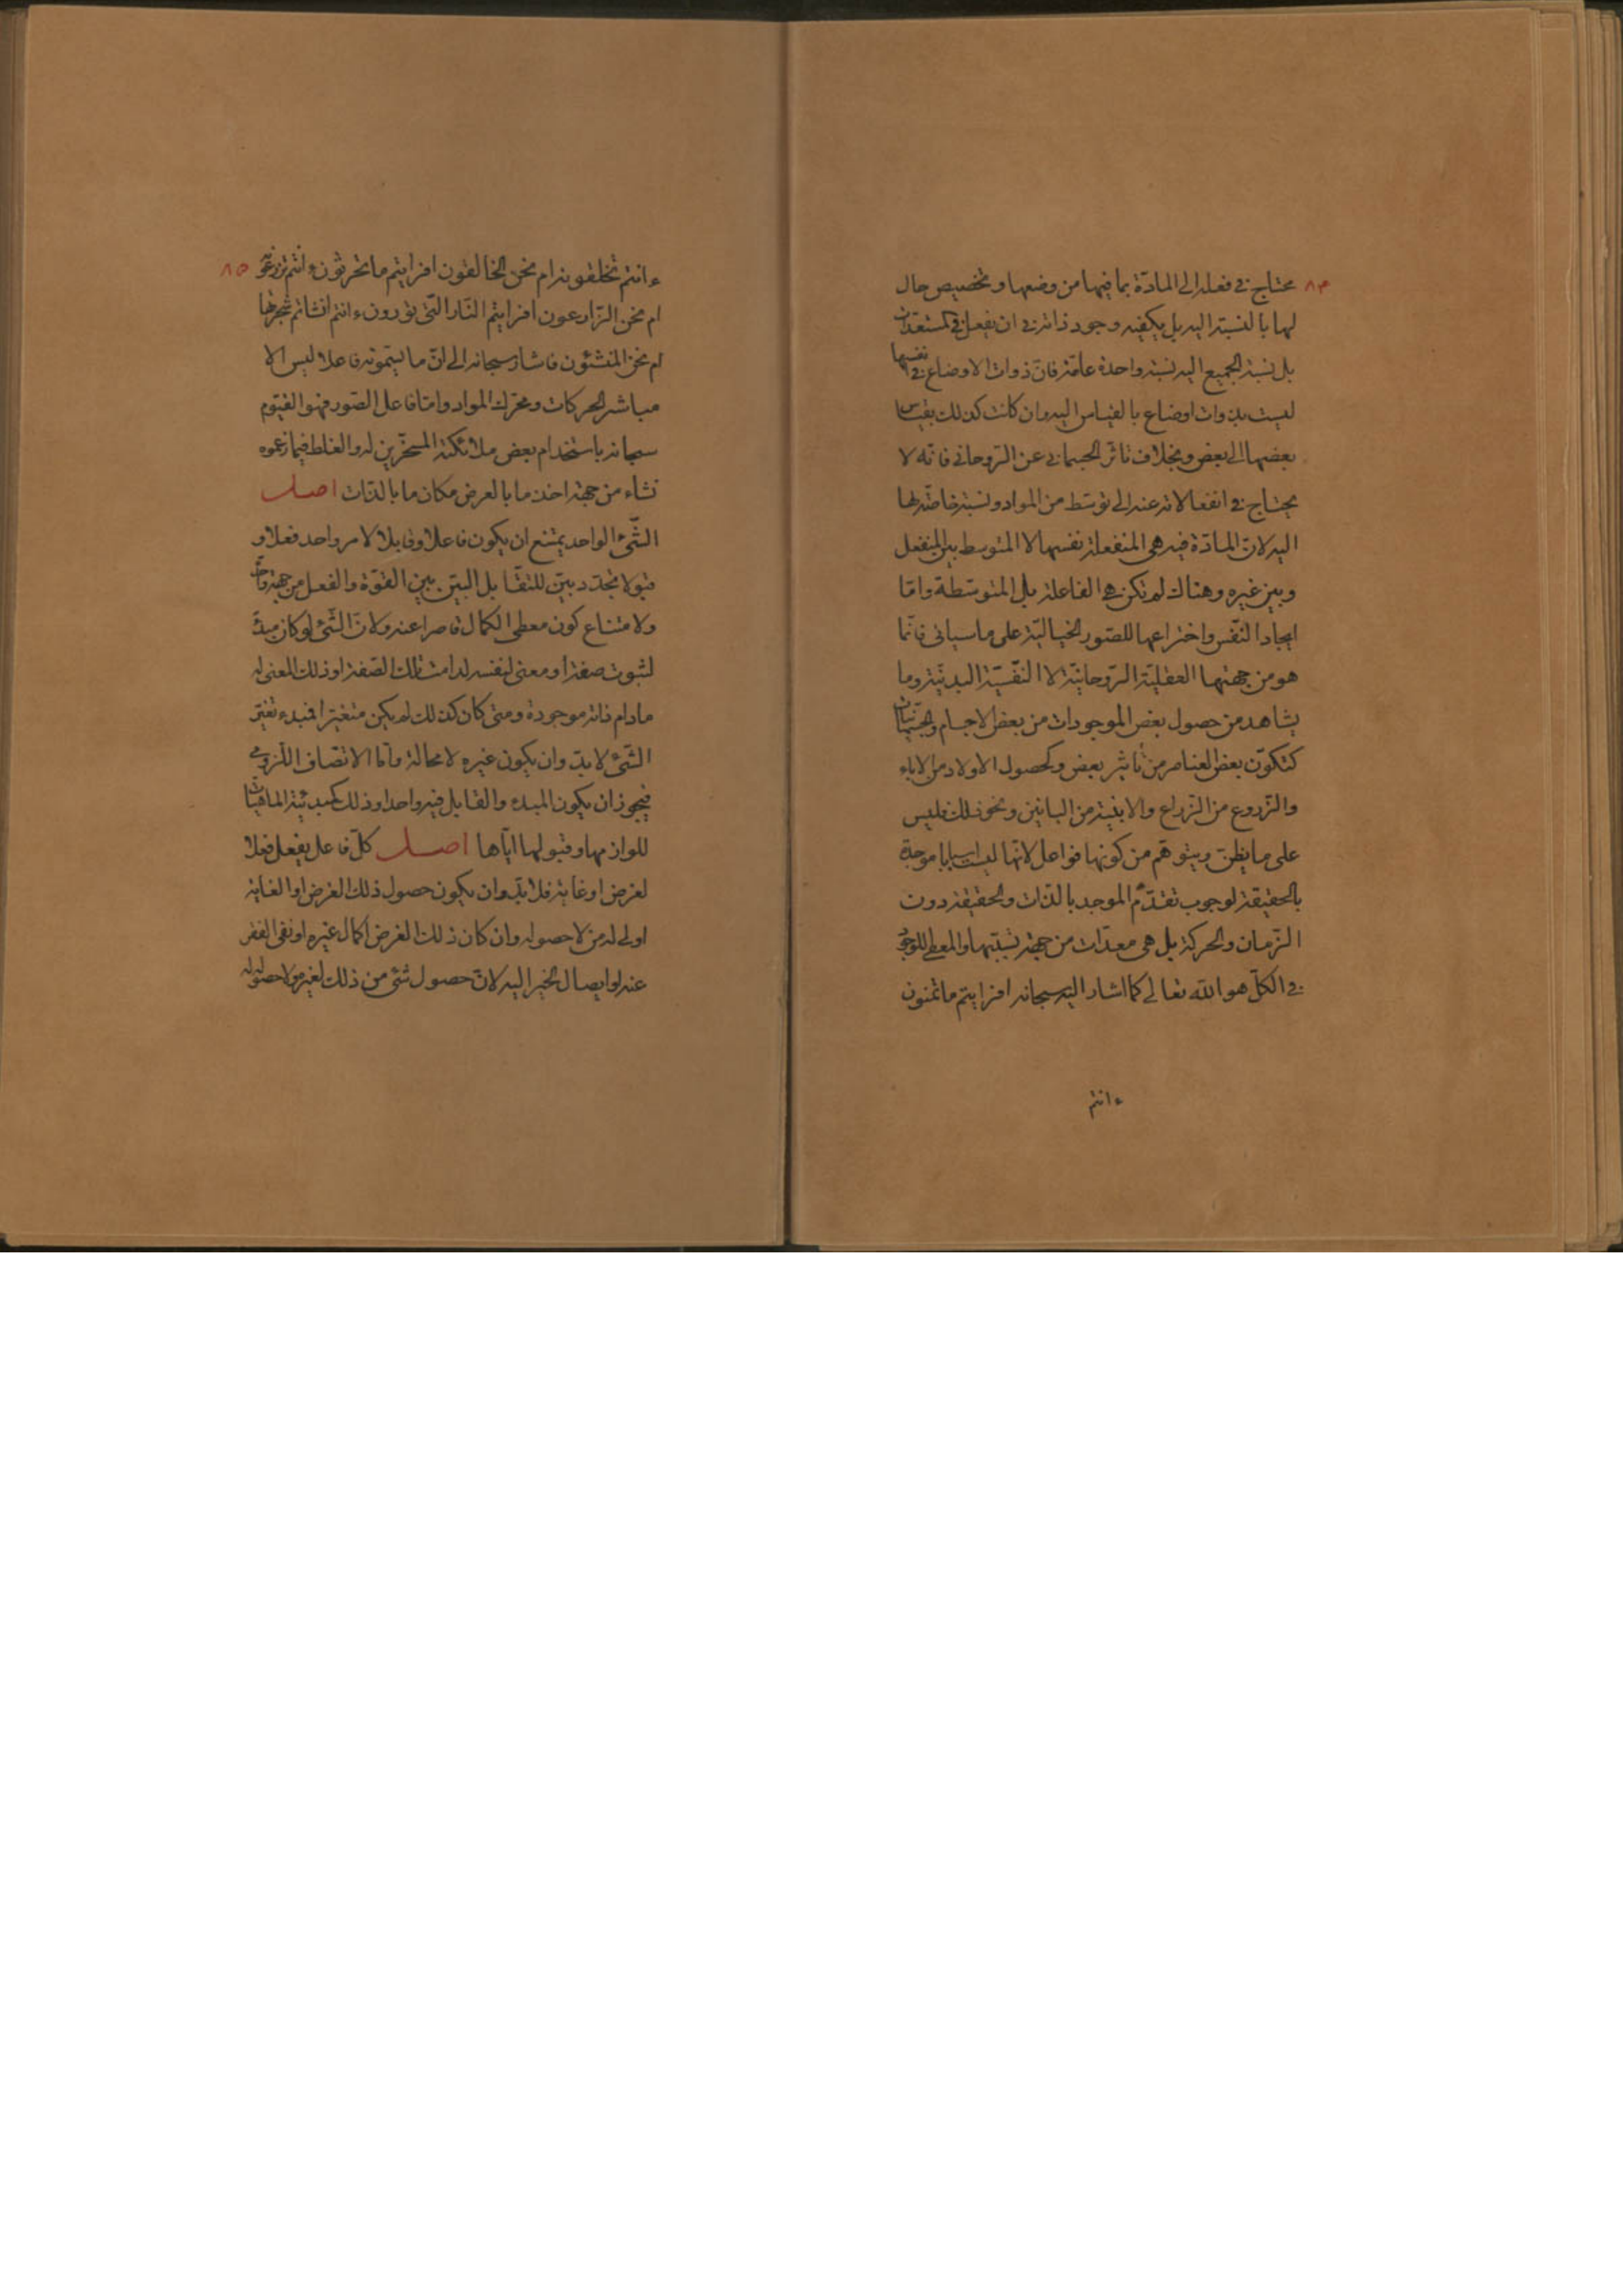 ٨٤
محتاج فى فعله الى المادّة بما فيها من وضعها و تخصيص حال
لها بالنسبة اليه بل يكفيه وجود ذاته فى ان يفعل فى المستعدّات
بل نسبة الجميع اليه نسبة واحدة عامّة فانّ ذوات الاوضاع فى نفسها
ليست بذوات اوضاع بالقياس اليه وان كانت كذلك بقياس
بعضها الى بعض وبخلاف تاثّر الجسمانى عن الرّوحانى فانّه لا
يحتاج فى انفعالاته عنه الى توسّط من المواد ونسبة خاصّة لها
اليه لانّ المادّة فيه هى المنفعلة نفسها لا المتوسط بين المنفعل
وبين غيره وهناك لم تكن هى الفاعلة بل المتوسّطة وامّا
ايجاد النّفس واختراعها للصّور الخياليّة على ما سياتى فانّما
هو من جهتها العقليّة الرّوحانيّة لا النّفسيّة البدنيّة وما
يشاهد من حصول بعض الموجودات من بعض الاجسام والجسمانيات
كتكوّن بعض العناصر من تأثير بعض وكحصول الاولاد من الاباء
والزروع من الزراع والابنية من البانين ونحو ذلك فليس
على ما يظنّ ويتوهّم من كونها فواعل لانّها ليست اسبابا موجدة
بالحقيقة لوجوب تقدّم الموجد بالذّات والحقيقة دون
الزمان والحركة بل هى معدّات من جهة تسبّبها والمعطى للوجود
فى الكلّ هو الله تعالى كما اشار اليه سبحانه افرايتم ما تمنون
ءانتم
٨٥
ءانتم تخلقونه ام نحن الخالقون افرايتم ما تحرثون ءانتم تزرعونه
ام نحن الزّارعون افرايتم النّار الّتى تورون ءانتم انشاتم شجرتها
ام نحن المنشئون فاشار سبحانه الى انّ ما يسمّونه فاعلا ليس الا
مباشر الحركات ومحرّك المواد وامّا فاعل الصّور فهو القيّوم
سبحانه باستخدام بعض ملائكته المسخّرين له والغلط فيما زعموه
نشاء من جهة اخذ ما بالعرض مكان ما بالذّات اصل
الشّئ الواحد يمتنع ان يكون فاعلا وقابلا لامر واحد فعلا و
قبولا تجدّديين للتّقابل البيّن بين القوّة والفعل من جهة واحدة
ولامتناع كون معطى الكمال قاصرا عنه ولانّ الشّئ لو كان مبدء
لثبوت صفة او معنى لنفسه لدامت تلك الصّفة او ذلك المعنى له
مادام ذاته موجودة ومتى كان كذلك لم يكن متغيّرا فمبدء تغيّر
الشّئ لابدّ وان يكون غيره لا محالة وامّا الاتّصاف اللّزومى
فيجوز ان يكون المبدء والقابل فيه واحدا وذلك كمبدئيّة الماهيّات
للوازمها وقبولها ايّاها اصل كلّ فاعل يفعل فعلا
لغرض او غاية فلابدّ وان يكون حصول ذلك الغرض او الغاية
اولى له من لا حصوله وان كان ذلك الغرض اكمال غيره او نفى الفقر
عنه او ايصال الخير اليه لانّ حصول شئ من ذلك لغيره ولا حصوله له